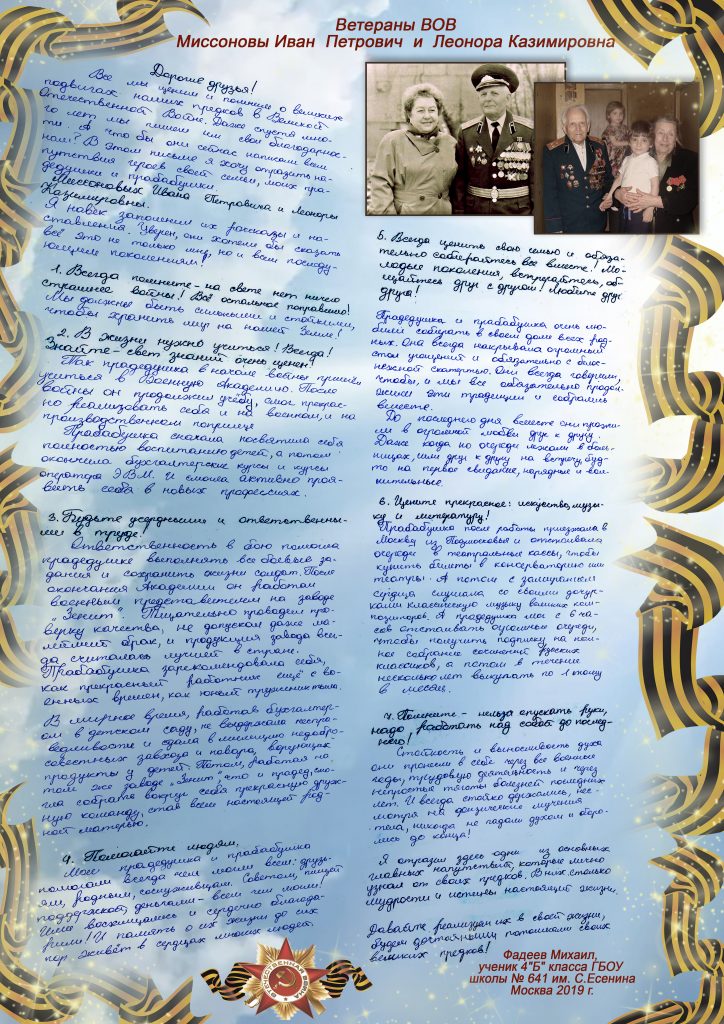 Ветераны ВОВ
Миссоновы Иван Петрович и Леонора Казимировна
Дорогие друзья!
Все мы ценим и помним о великих
подвигах наших предков в Великой
Отечественной Войне. Даже спустя мно-
го лет мы шлем им свои благодарнос-
ти. А что бы они сейчас написали всем
нам? В этом письме я хочу отразить на-
путствия героев своей семьи, моих пра-
дедушки и прабабушки.
Миссоновых Ивана Петровича и Леоноры
Казимировны.
Я навек запомнил их рассказы и на-
ставления. Уверен, они хотели бы сказать
всё это не только мне, но и всем последу-
ющим поколениям!
1. Всегда помните - на свете нет ничего
страшнее войны! Всё остальное поправимо!
Мы должны быть сильными и стойкими,
чтобы хранить мир на нашей Земле!
2. В жизни нужно учиться! Всегда!
Знайте - свет знаний очень ценен!
Так прадедушка в начале войны пришел
учиться в Военную Академию. После
войны он продолжил учёбу, смог прекрас-
но реализовать себя и на военном, и на
производственном поприще.
Прабабушка сначала посвятила себя
полностью воспитанию детей, а потом
окончила бухгалтерские курсы и курсы
оператора ЭВМ. И смогла активно проя-
вить себя в новых профессиях.
3. Будьте усердными и ответственны-
ми в труде!
Ответственность в бою помогла
прадедушке выполнять все боевые за-
дания и сохранить жизни солдат. После
окончания Академии он работал
военным представителем на заводе
„Зенит". Тщательно проводил про-
верку качества, не допускал даже ма-
лейший брак, и продукция завода все-
да считалась лучшей в стране.
Прабабушка зарекомендовала себя,
как прекрасный работник ещё с во-
енных времен, как юный труженик тыла.
В мирное время, работая бухгалтер-
ом в детском саду, не выдержала неспра-
ведливости и сдала в милицию недобро-
совестных завхоза и повара, ворующих
продукты у детей. Потом, работая на
том же заводе „Зенит", что и прадед, смо-
гла собрать вокруг себя прекрасную друж-
ную команду, став всем настоящей род-
ной матерью.
4. Помогайте людям.
Мои прадедушка и прабабушка
помогали всегда чем могли всем: друзь-
ям, родным, сослуживцам. Советом, пищей
поддержкой, деньгами - всем чем могли!
Ими восхищались и сердечно благода-
рили! И память о их жизни до сих
пор живёт в сердцах многих людей.
5. Всегда ценить свою семью и обяза-
тельно собирайтесь все вместе! Мо-
лодые поколения, встречайтесь, об-
щайтесь друг с другом! Любите друг
друга!
Прадедушка и прабабушка очень лю-
били собирать в своем доме всех род-
ных. Она всегда накрывала огромный
стол угощений и обязательно с бело-
снежной скатертью. Они всегда говорили,
чтобы, и мы все обязательно продол-
жили эти традиции и собирались
вместе.
До последнего дня вместе они прожи-
ли в огромной любви друг к другу.
Даже когда по очереди лежали в боль-
ницах, шли друг к другу на встречу, буд-
то на первое свидание, нарядные и вол-
нительные.
6. Цените прекрасное: искусство, музы-
ку и литературу!
Прабабушка после работы приезжала в
Москву из Подмосковья и отстаивала
очереди в театральные кассы, чтобы
купить билеты в консерваторию или
театры. А потом с замиранием
сердца слушала со своими дочур-
ками классическую музыку великих ком-
позиторов. А прадедушка мог с 6 ча-
сов отстаивать огромные очереди,
чтобы получить подписку на пол-
ное собрание сочинений русских
классиков, а потом в течение
нескольких лет выкупать по 1 тому
в месяц.
7. Помните - нельзя опускать руки,
надо работать над собой до послед-
него!
Стойкость и выносливость духа
они пронесли в себе через все военные
годы, трудовую деятельность и через
непростые тяготы болезней последних
лет. И всегда стойко держались, нес-
мотря на физические мучения
тела, никогда не падали духом и боро-
лись до конца!
Я отразил здесь одни из основных
главных напутствий, которые лично
узнал от своих предков. В них столько
мудрости и истины настоящей жизни.
Давайте реализуем их в своей жизни,
будем достойными потомками своих
великих предков!
Фадеев Михаил,
ученик 4"Б" класса ГБОУ
школы № 641 им. С.Есенина
Москва 2019 г.
ОТЕЧЕСТВЕННАЯ ВОЙНА